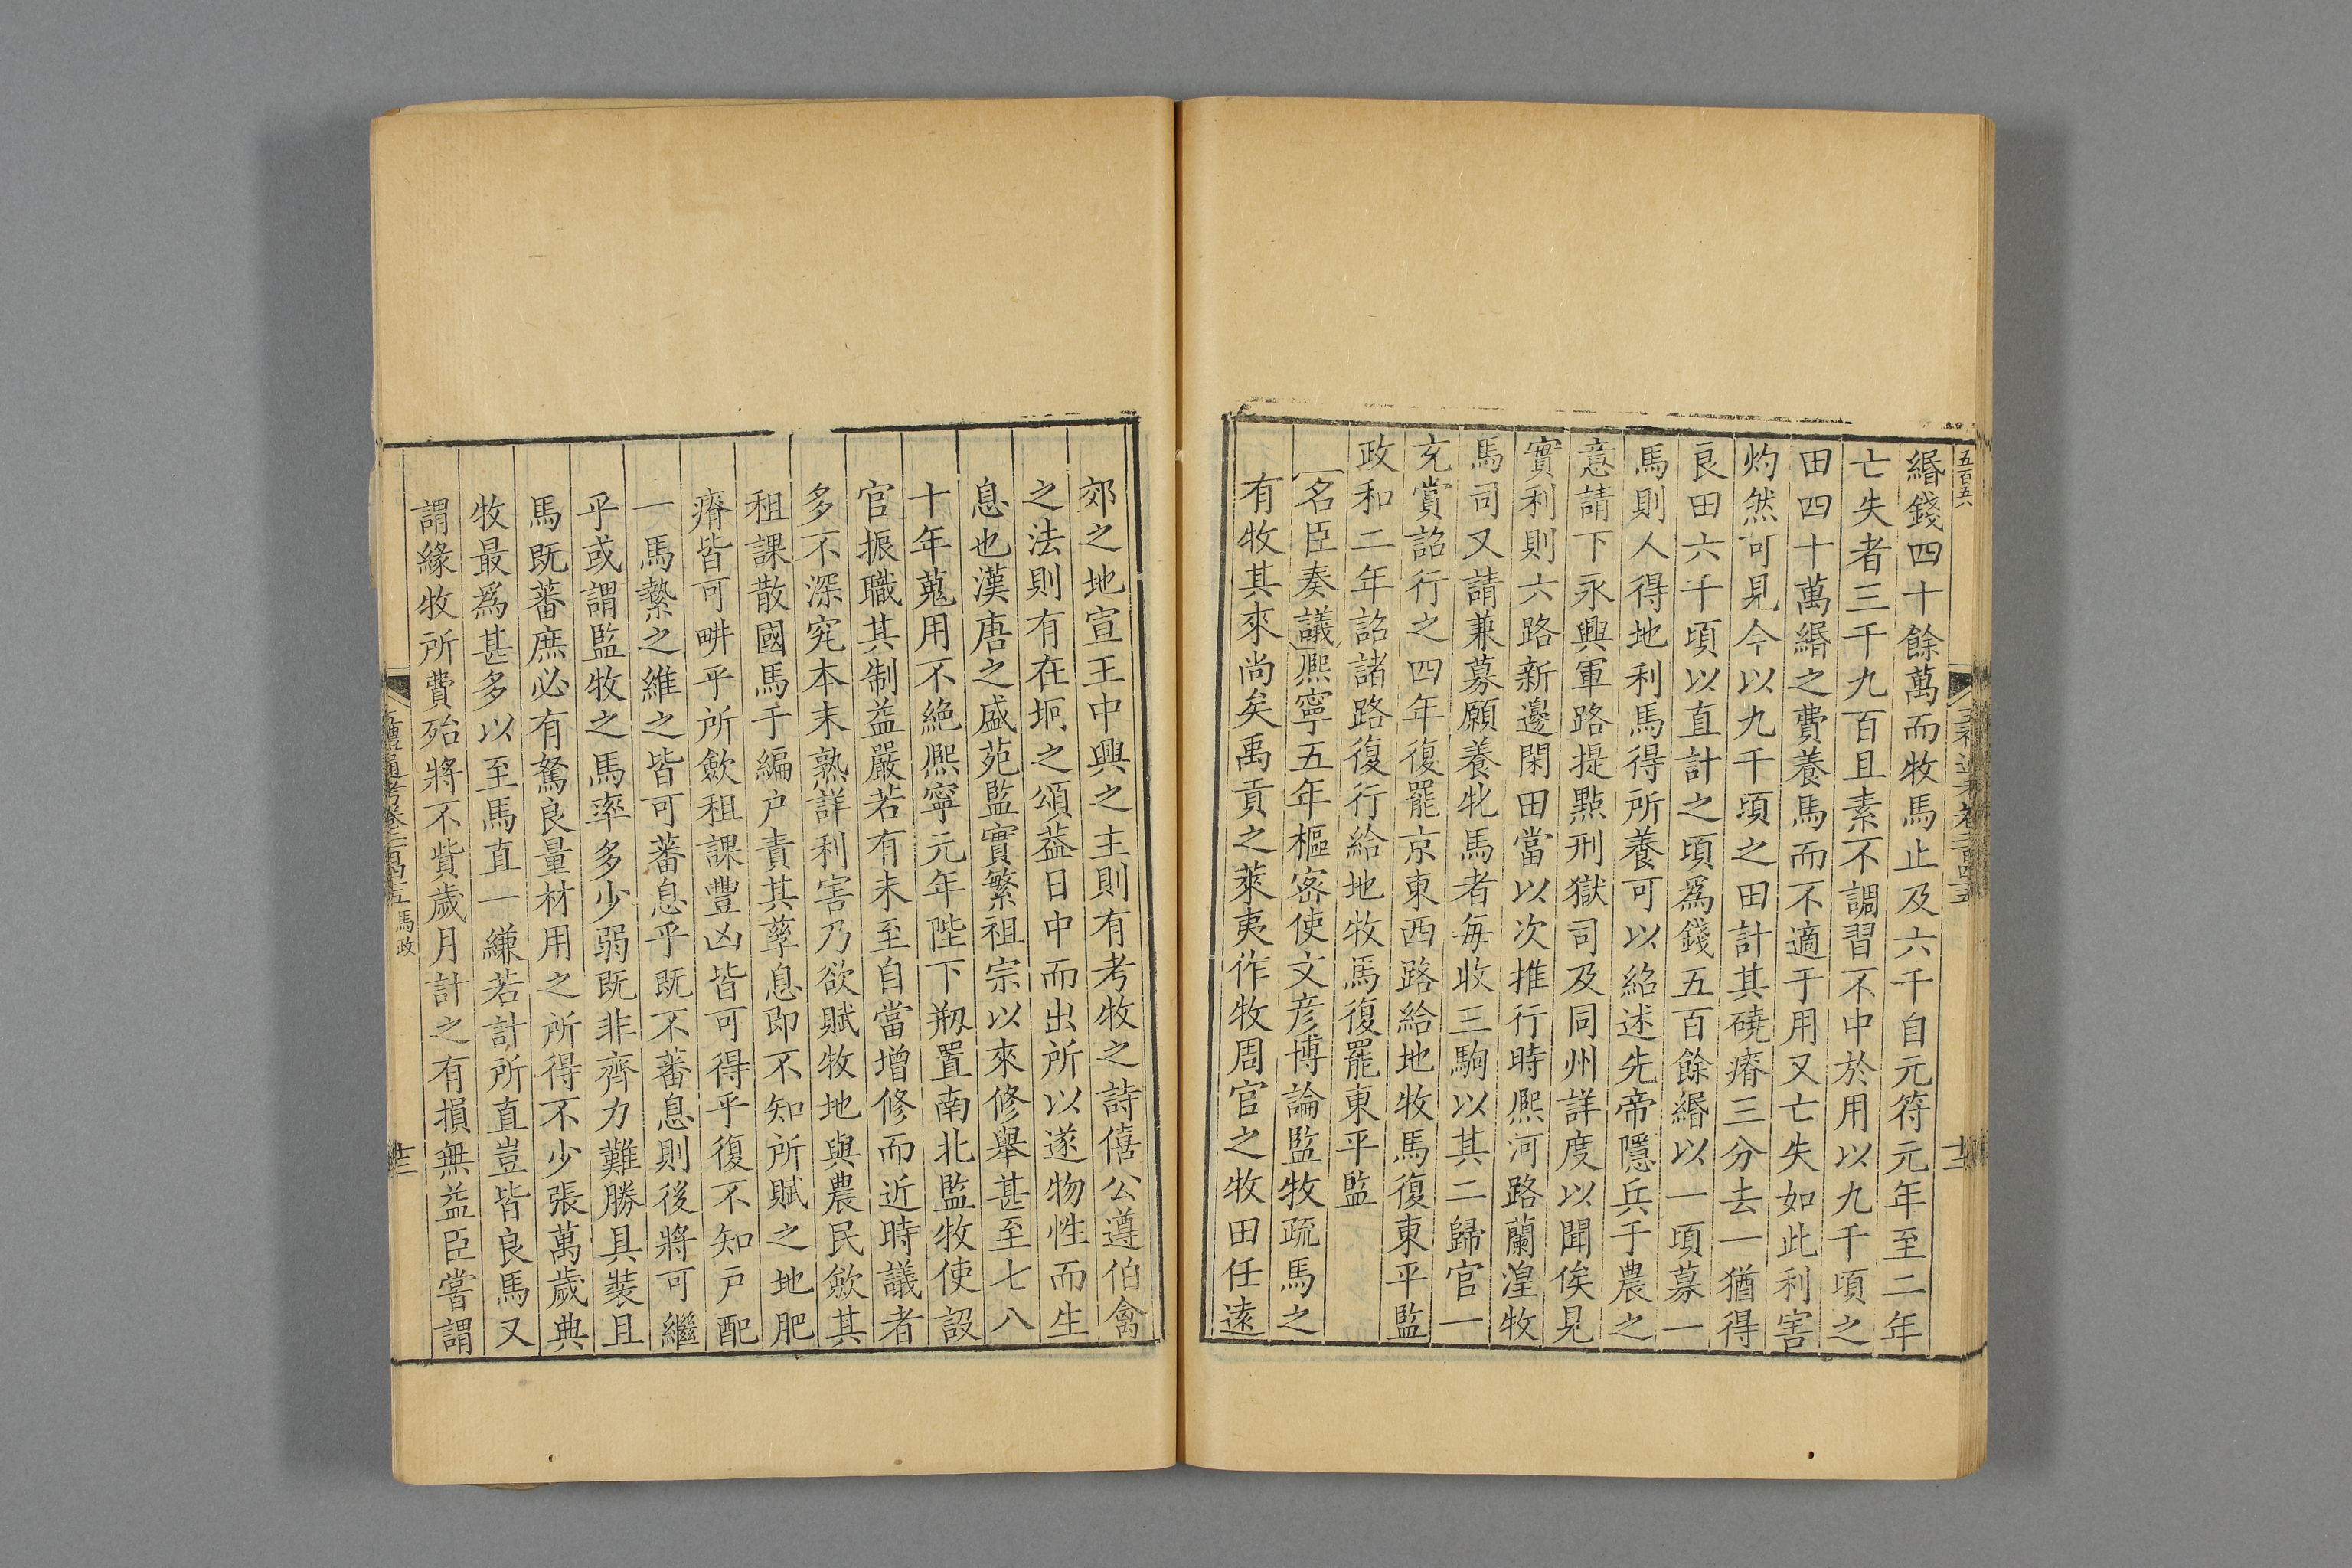 五百五六
五禮通考卷二百四十五
十二
緡錢四十餘萬而牧馬止及六千自元符元年至二年
亡失者三千九百且素不調習不中於用以九千頃之
田四十萬緡之費養馬而不適于用又亡失如此利害
灼然可見今以九千頃之田計其磽瘠三分去一猶得
良田六千頃以直計之頃爲錢五百餘緡以一頃募一
馬則人得地利馬得所養可以紹述先帝隱兵于農之
意請下永興軍路提點刑獄司及同州詳度以聞俟見
實利則六路新邊閑田當以次推行時熈河路蘭湟牧
馬司又請兼募願養牝馬者每收三駒以其二歸官一
充賞詔行之四年復罷京東西路給地牧馬復東平監
政和二年詔諸路復行給地牧馬復罷東平監
〔名臣奏議〕熈寧五年樞密使文彦博論監牧疏馬之
有牧其來尚矣禹貢之萊夷作牧周官之牧田任遠
郊之地宣王中興之主則有考牧之詩僖公遵伯禽
之法則有在坰之頌葢日中而出所以遂物性而生
息也漢唐之盛苑監實繁祖宗以來修舉甚至七八
十年蒐用不絶熈寧元年陛下剏置南北監牧使設
官振職其制益嚴若有未至自當增修而近時議者
多不深究本末熟詳利害乃欲賦牧地與農民歛其
租課散國馬于編户責其孳息即不知所賦之地肥
瘠皆可畊乎所歛租課豐凶皆可得乎復不知戸配
一馬縶之維之皆可蕃息乎既不蕃息則後將可繼
乎或謂監牧之馬率多少弱既非齊力難勝具裝且
馬既蕃庶必有駑良量材用之所得不少張萬歲典
牧最爲甚多以至馬直一縑若計所直豈皆良馬又
謂緣牧所費殆將不貲歲月計之有損無益臣嘗謂
五禮通考卷二百四十五 馬政
十三